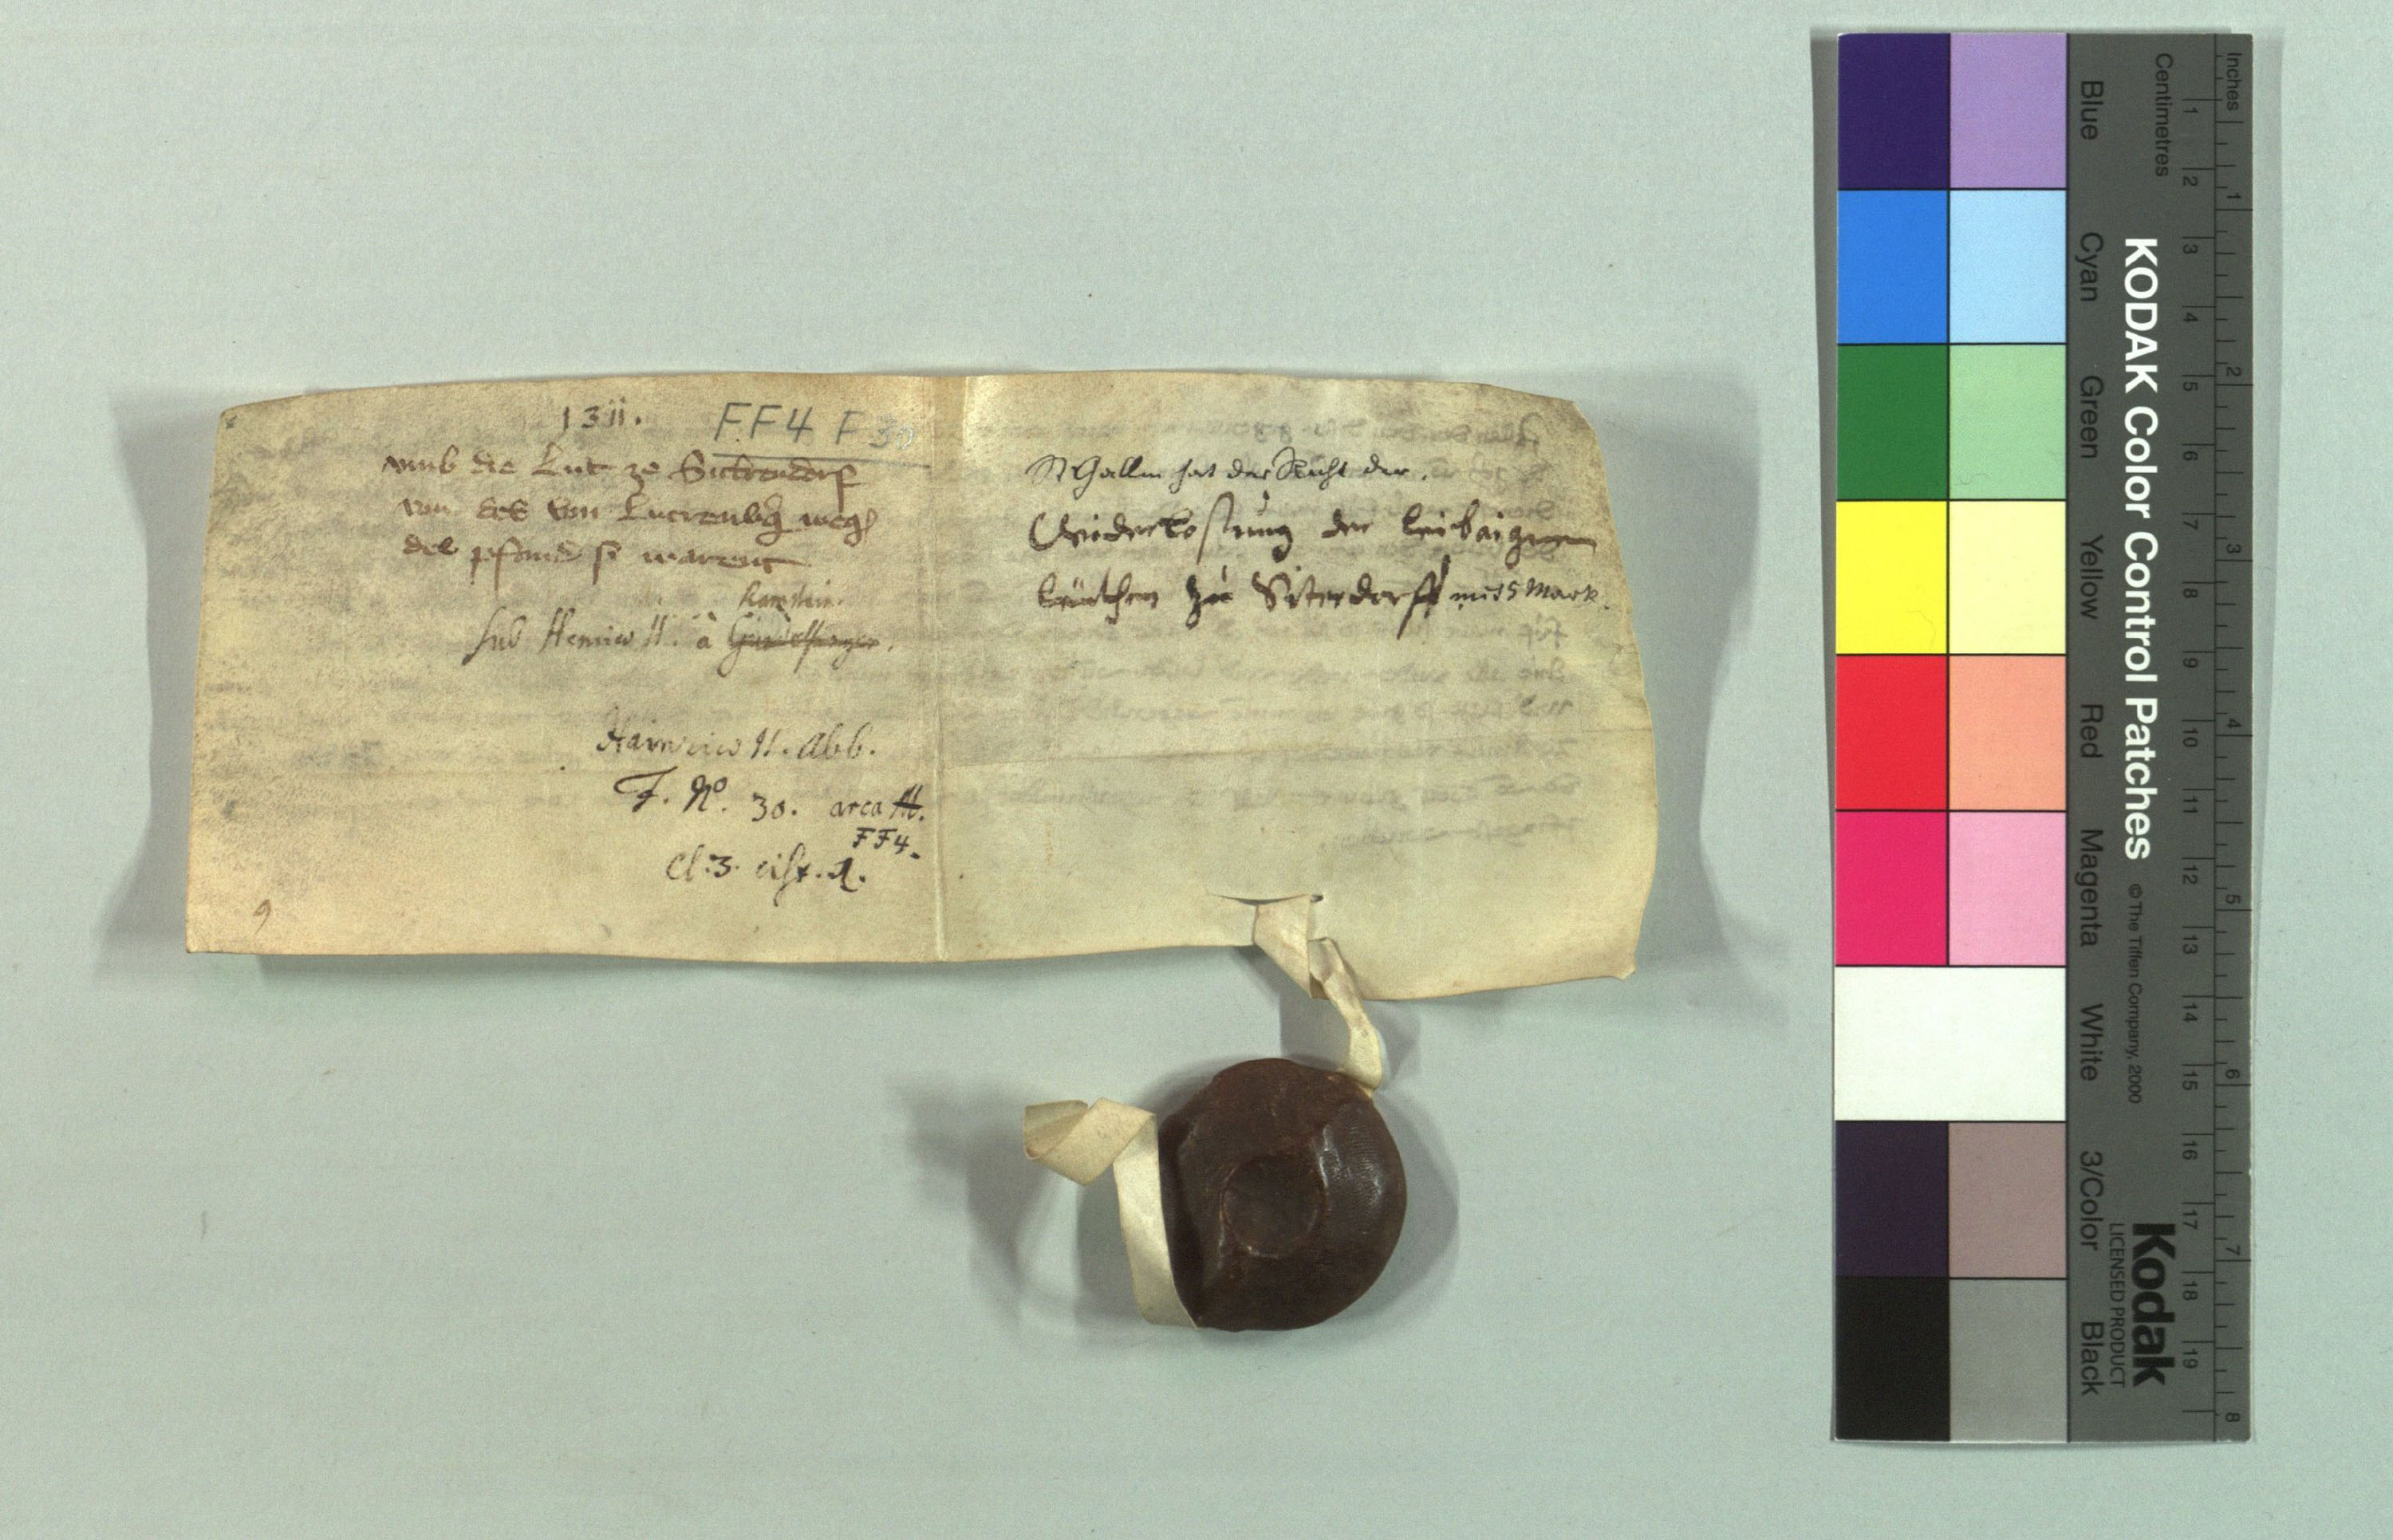 1311.
FF4 F 30
umb die Lut ze Sittendorf
von des von Luterberg wegen
des pfand si warent
Ramstein.
sub Henrico II. à Gundelfingen.
Hainrico II. Abb.
F. No. 30. arca A.
FF4.
Cl. 3. cist. 1.
9
St Gallen hat das Recht der
Widerlosung der leibaignen
leüthen zu Siterdorff mit 5 Mark.
Inches
Centimetres
1 2 3 4 5 6 7 8 9 10 11 12 13 14 15 16 17 18 19
1 2 3 4 5 6 7 8
KODAK Color Control Patches
© The Tiffen Company, 2000
Kodak
LICENSED PRODUCT
Blue
Cyan
Green
Yellow
Red
Magenta
White
3/Color
Black